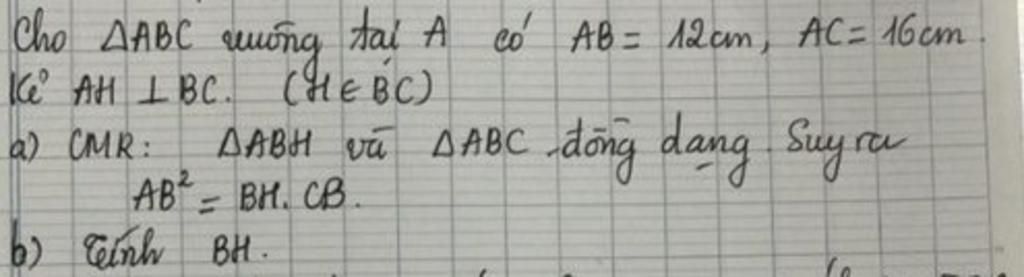 Cho ΔABC vuông tại A có AB = 12cm, AC = 16cm.
Kẻ AH ⊥ BC. (H ∈ BC)
a) CMR: ΔABH và ΔABC đồng dạng. Suy ra
AB² = BH. CB.
b) Tính BH.